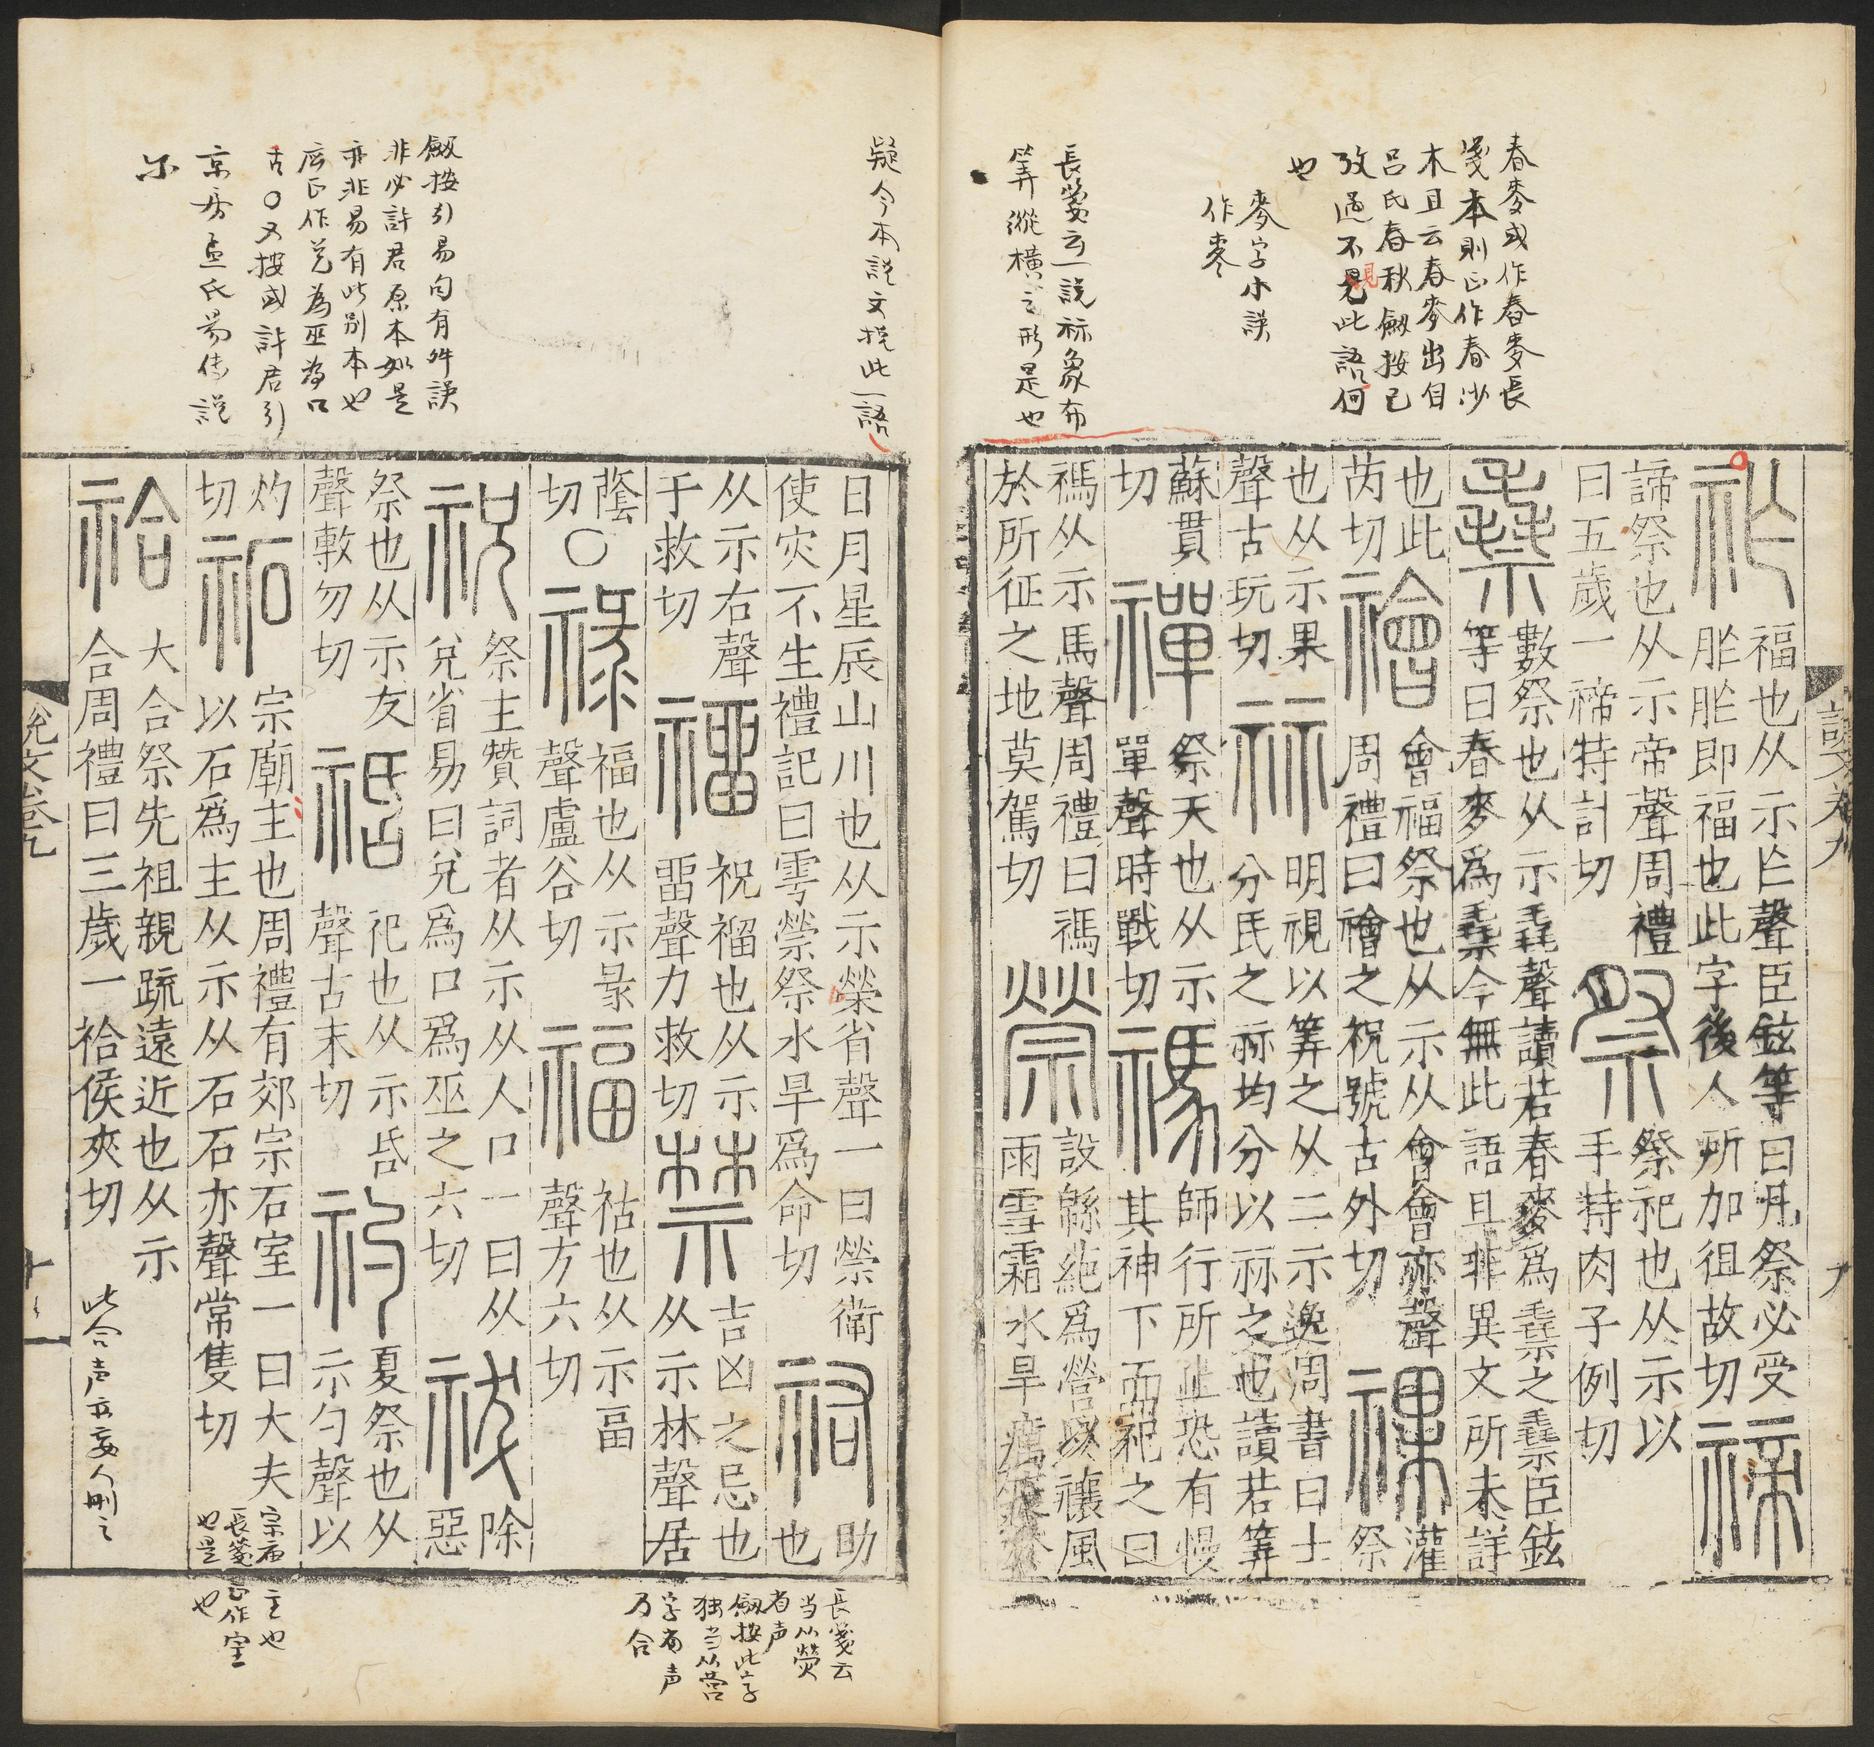 春麥或作舂麥長
箋本則正作舂沙
木且云舂麥出自
呂氏春秋劔按已
攷過不見此語何
也
麥字小誤
作麥
長箋云一說祘象布
筭縱橫之形是也
祚
福也从示乍聲臣鉉等曰凡祭必受
胙胙即福也此字後人所加徂故切
禘
諦祭也从示帝聲周禮
曰五歲一禘特計切
祭
祭祀也从示以
手持肉子例切
𥛱
數祭也从示毳聲讀若春麥爲𥛱之𥛱臣鉉
等曰春麥爲𥛱今無此語且非異文所未詳
也此
芮切
禬
會福祭也从示从會會亦聲
周禮曰禬之祝號古外切
祼
灌
祭
也从示果
聲古玩切
祘
明視以筭之从二示逸周書曰士
分民之祘均分以祘之也讀若筭
蘇貫
切
禪
祭天也从示
單聲時戰切
禡
師行所止恐有慢
其神下而祀之曰
禡从示馬聲周禮曰禡
於所征之地莫駕切
禜
設緜蕝爲營以禳風
雨雪霜水旱癘
說文卷九
九
疑今本說文挩此一語
劔按引易句有舛誤
非必許君原本如是
亦非易有此別本也
應正作兌為巫為口
古○又按或許君引
京房孟氏易傳說
尔
日月星辰山川也从示榮省聲一曰禜衞
使灾不生禮記曰雩禜祭水旱爲命切
祐
助
也
从示右聲
于救切
𥛅
祝𥛅也从示
畱聲力救切
禁
吉凶之忌也
从示林聲居
蔭
切
○
祿
福也从示彔
聲盧谷切
福
祜也从示畐
聲方六切
祝
祭主贊詞者从示从人口一曰从
兌省易曰兌爲口爲巫之六切
祓
除
惡
祭也从示犮
聲敷勿切
䄆
祀也从示𠯑
聲古末切
礿
夏祭也从
示勺聲以
灼
切
祏
宗廟主也周禮有郊宗石室一曰大夫
以石爲主从示从石石亦聲常隻切
祫
大合祭先祖親疏遠近也从示
合周禮曰三歲一祫侯夾切
此合声亦妄人刪之
說文卷九
十
長箋云
当从熒
省声
劔按此字
独当从營
字省声
乃合
宗庙主也
長箋主作宔
也是也